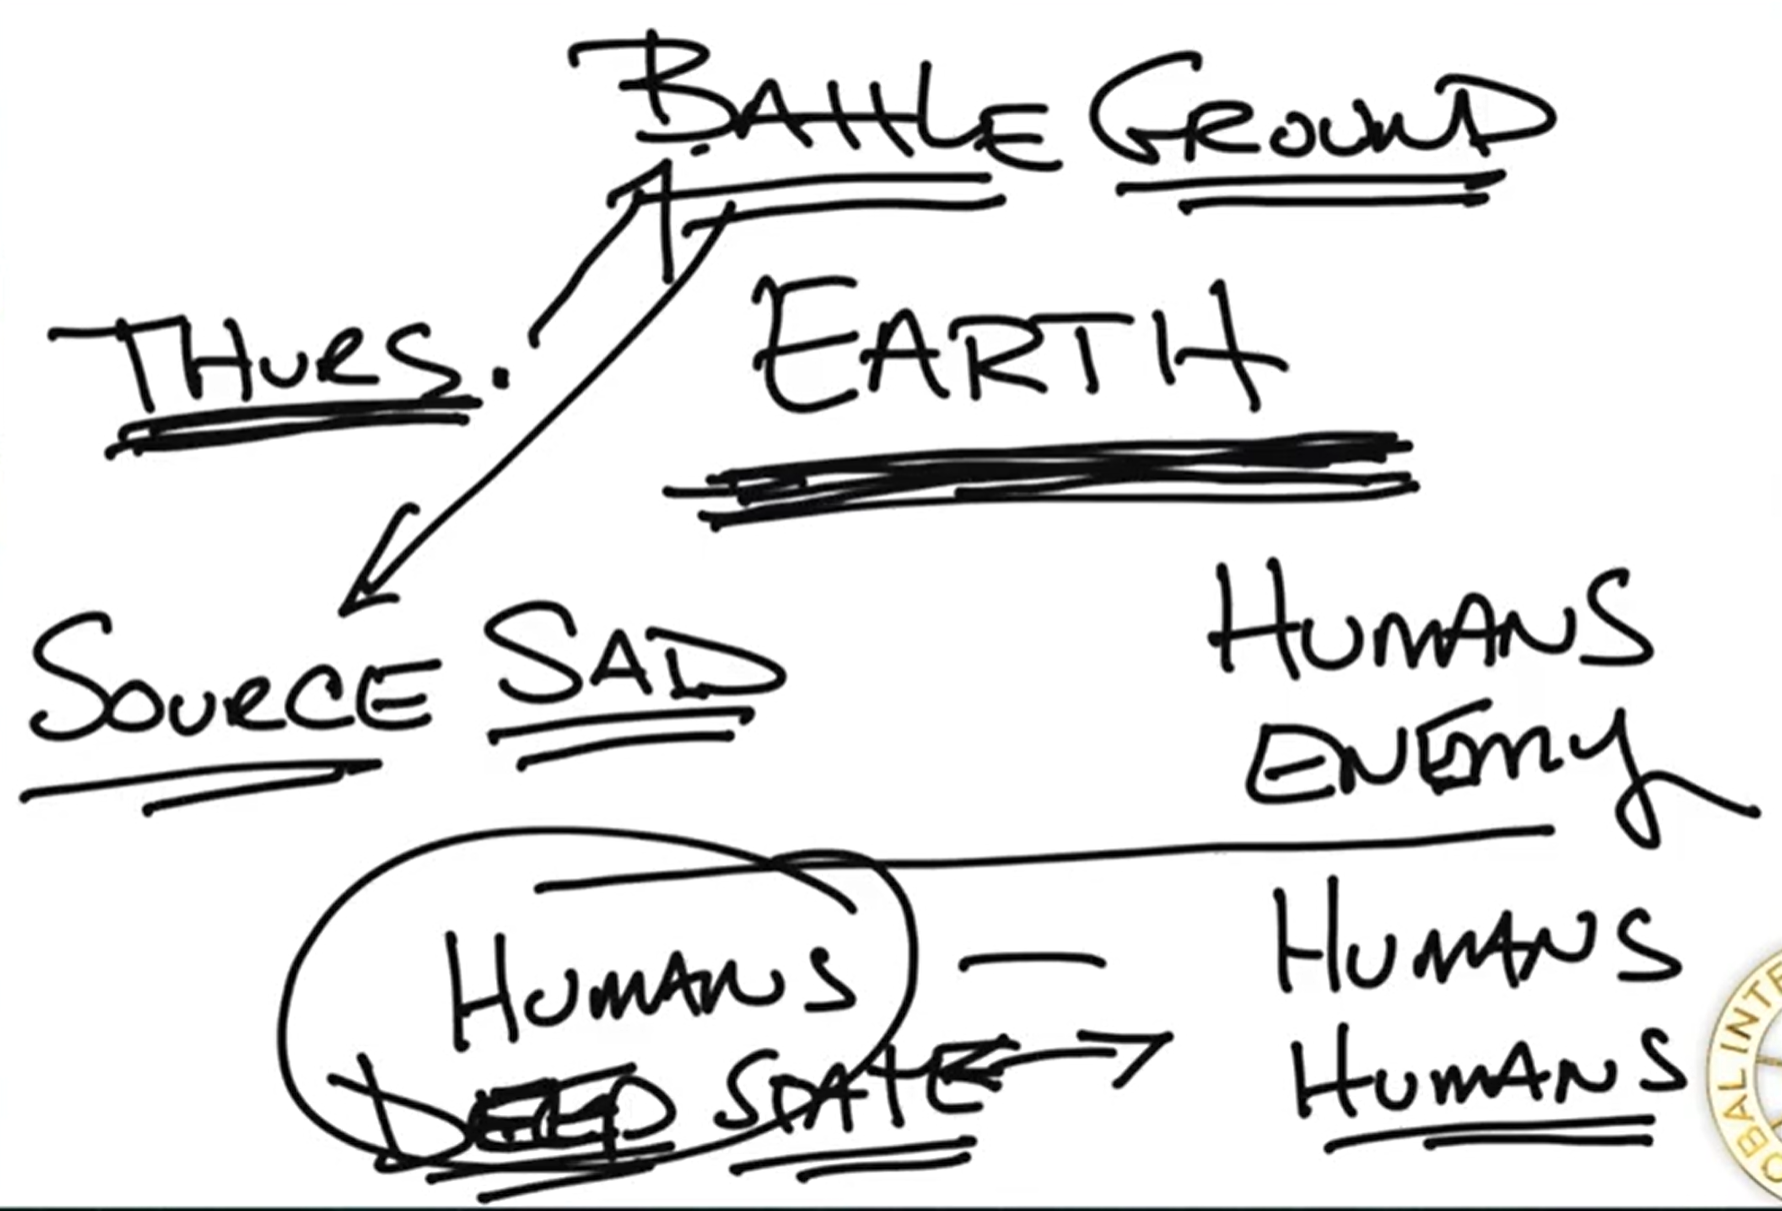 BATTLE GROUND
THURS.
EARTH
SOURCE SAD
HUMANS
ENEMY
HUMANS — HUMANS
DEEP STATE HUMANS
OBAL INTE